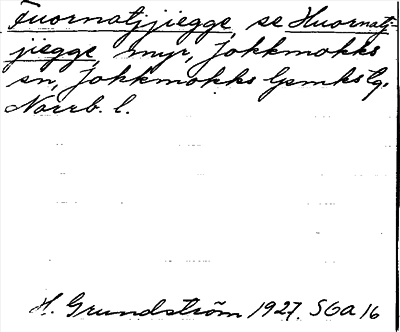 Fuornatjjiegge, se Huornatj-
jiegge, myr, Jokkmokks
sn, Jokkmokks lpmks lg.
Norrb. l.
H. Grundström 1927. SOA 16